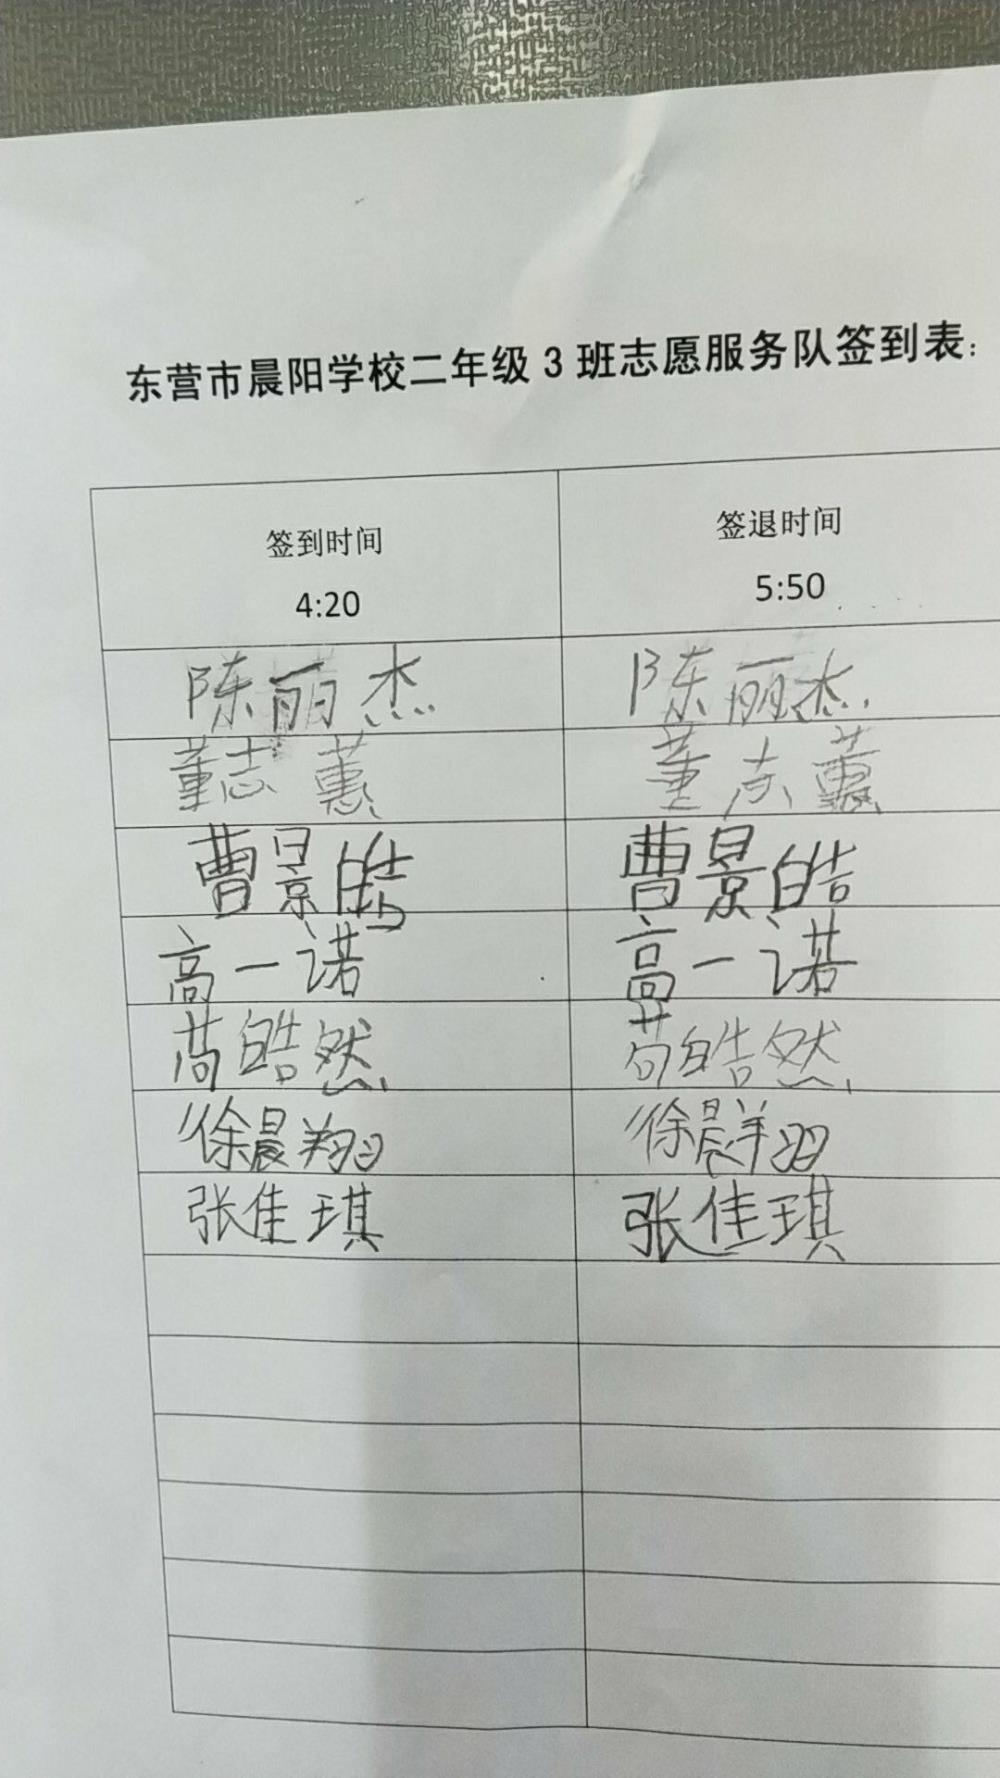 东营市晨阳学校二年级3班志愿服务队签到表：
签到时间 签退时间
4:20 5:50
陈丽杰 陈丽杰
董志蕙 董志蕙
曹景皓 曹景皓
高一诺 高一诺
苟皓然 苟皓然
徐晨翔 徐晨翔
张佳琪 张佳琪